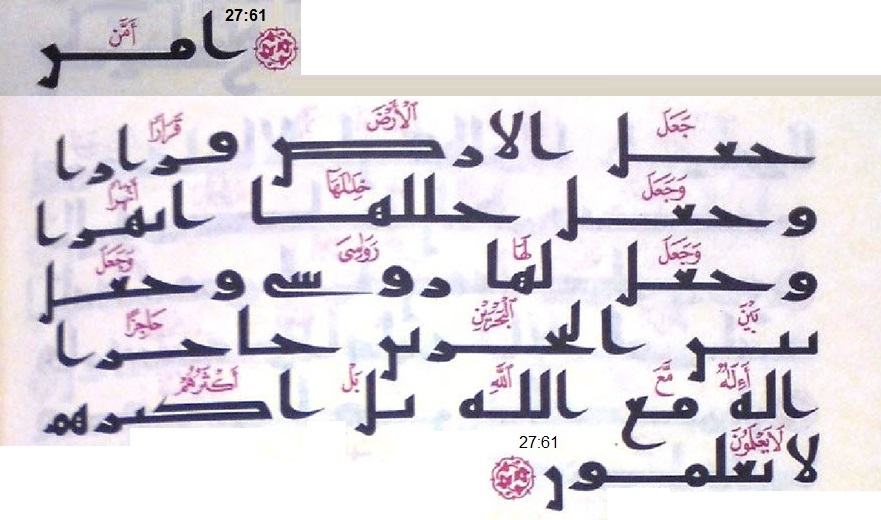 27:61
أَمَّن
امن
جَعَلَ ٱلْأَرْضَ قَرَارًا
جعل الارض قرارا
وَجَعَلَ خِلَٰلَهَا أَنْهَٰرًا
وجعل خللها انهرا
وَجَعَلَ لَهَا رَوَٰسِىَ وَجَعَلَ
وجعل لها روسى وجعل
بَيْنَ ٱلْبَحْرَيْنِ حَاجِزًا
بين البحرين حاجزا
أَءِلَٰهٌ مَّعَ ٱللَّهِ بَلْ أَكْثَرُهُمْ
اله مع الله بل اكثرهم
لَا يَعْلَمُونَ
لا يعلمون
27:61